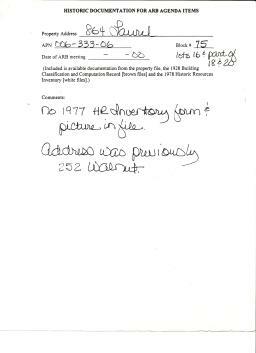 HISTORIC DOCUMENTATION FOR ARB AGENDA ITEMS
Property Address 864 Laurel
APN 006-333-06 Block # 75
Date of ARB meeting - -00 lots 16 & part of
18 & 20
(Included is available documentation from the property file, the 1928 Building
Classification and Computation Record [brown files] and the 1978 Historic Resources
Inventory [white files].)
Comments:
No 1977 HR Inventory form &
picture in file.
Address was previously
252 Walnut.